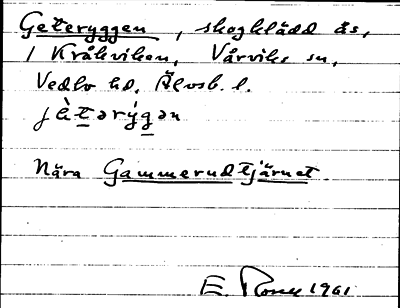 Geteryggen, skogklädd ås,
i Kråkviken, Vårviks sn,
Vedbo hd, Älvsb. l.
jètərýgən
Nära Gammerudtjärnet.
E. 1961